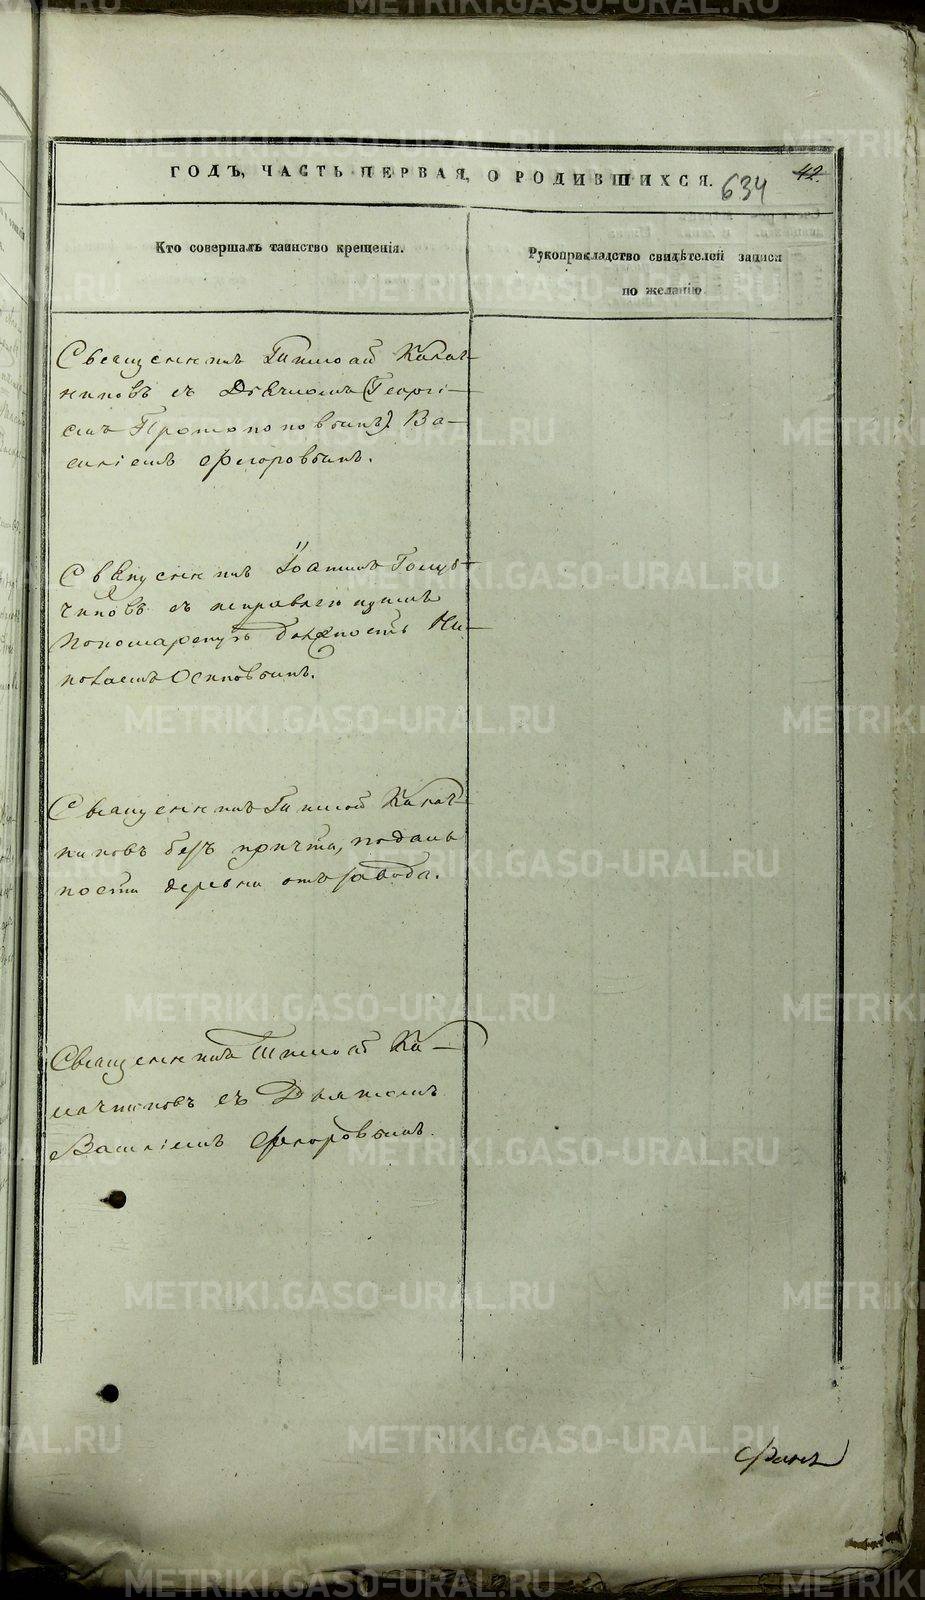 ГОДЪ, ЧАСТЬ ПЕРВАЯ, О РОДИВШИХСЯ.
634
42.
Кто совершалъ таинство крещенія.
Рукоприкладство свидѣтелей записи
по желанію
Священникъ Тимоѳей Калач-
никовъ съ Дьячкомъ (Георгі-
емъ Протопоповымъ). Ва-
силіемъ Флоровымъ.
Священникъ Іоаннъ
съ исправляющимъ
Пономарскую должность Ни-
колаемъ Осиповымъ.
Священникъ Тимоѳей Калач-
никовъ безъ причта, по даль
ности деревни отъ завода.
Священникъ Тимоѳей Ка-
лачниковъ съ Дьячкомъ
Василіемъ Флоровымъ.
METRIKI.GASO-URAL.RU